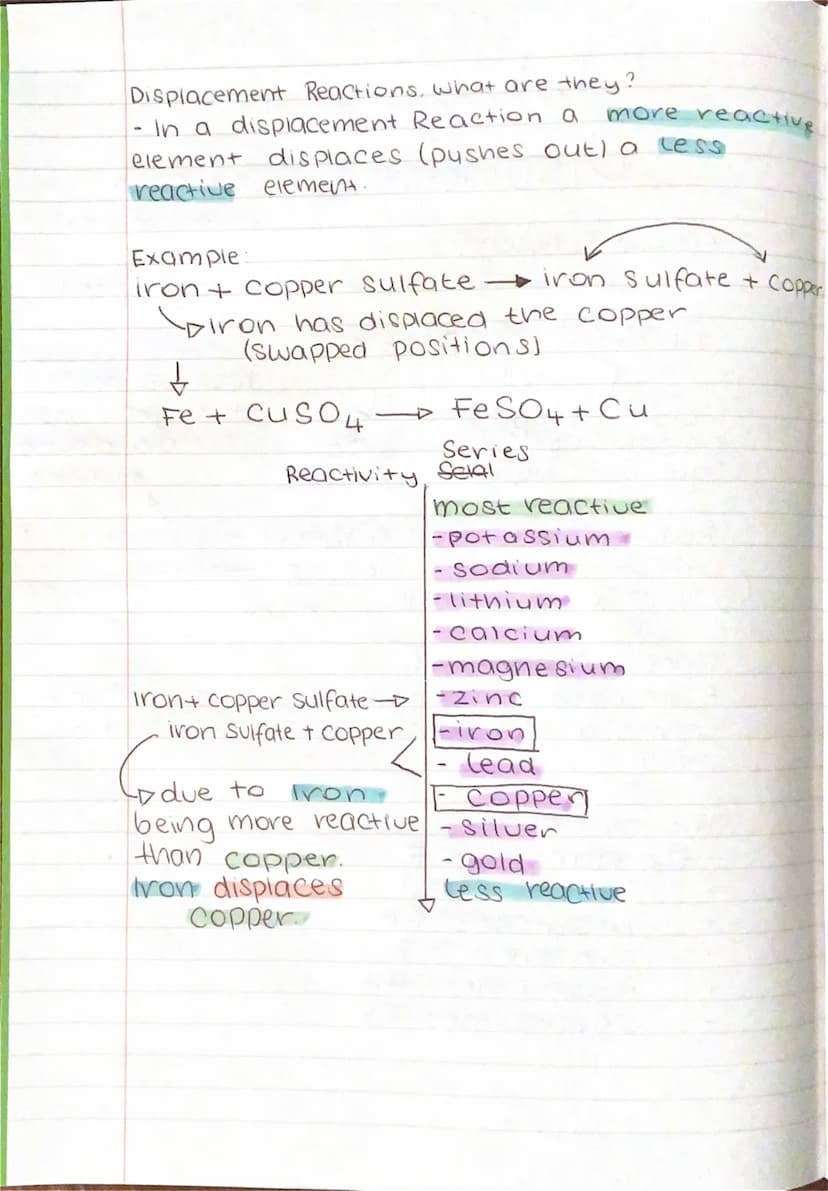 Displacement Reactions. What are they?
- In a displacement Reaction a more reactive
element displaces (pushes out) a less
reactive element.
Example:
iron + copper sulfate → iron sulfate + copper
↳ Iron has displaced the copper
(swapped positions)
↓
Fe + CuSO₄ → FeSO₄ + Cu
Series
Reactivity Seial
most reactive
- potassium
- sodium
- lithium
- calcium
- magnesium
- zinc
- iron
- lead
- copper
- silver
- gold
less reactive
Iron + copper sulfate →
iron sulfate + copper
↳ due to Iron
being more reactive
than copper.
Iron displaces
copper.